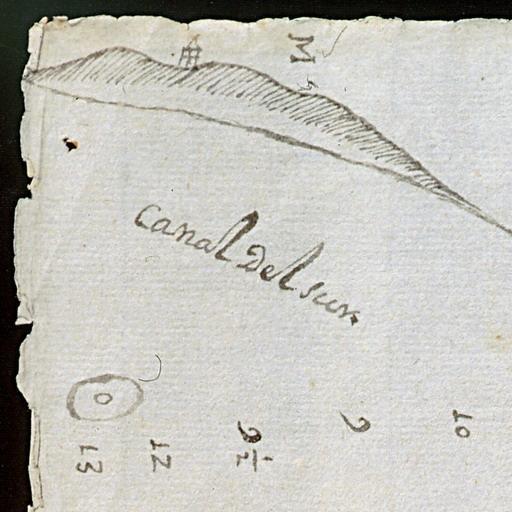 M
canal del sur.
0
13
12
9 1/2
9
10